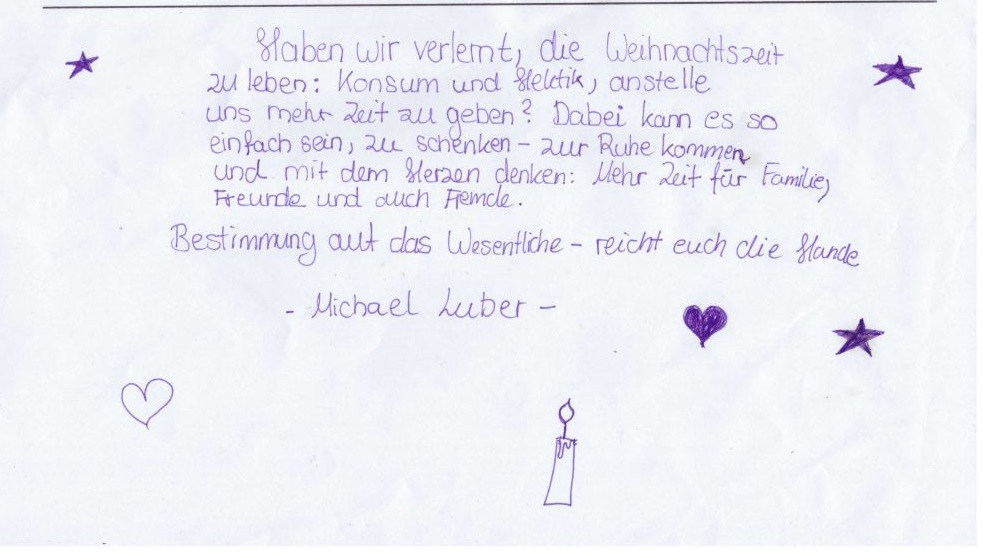 Haben wir verlernt, die Weihnachtszeit
zu leben: Konsum und Hektik, anstelle
uns mehr Zeit zu geben? Dabei kann es so
einfach sein, zu schenken - zur Ruhe kommen
und mit dem Herzen denken: Mehr Zeit für Familie,
Freunde und auch Fremde.
Bestimmung auf das Wesentliche - reicht euch die Hände
- Michael Luber -